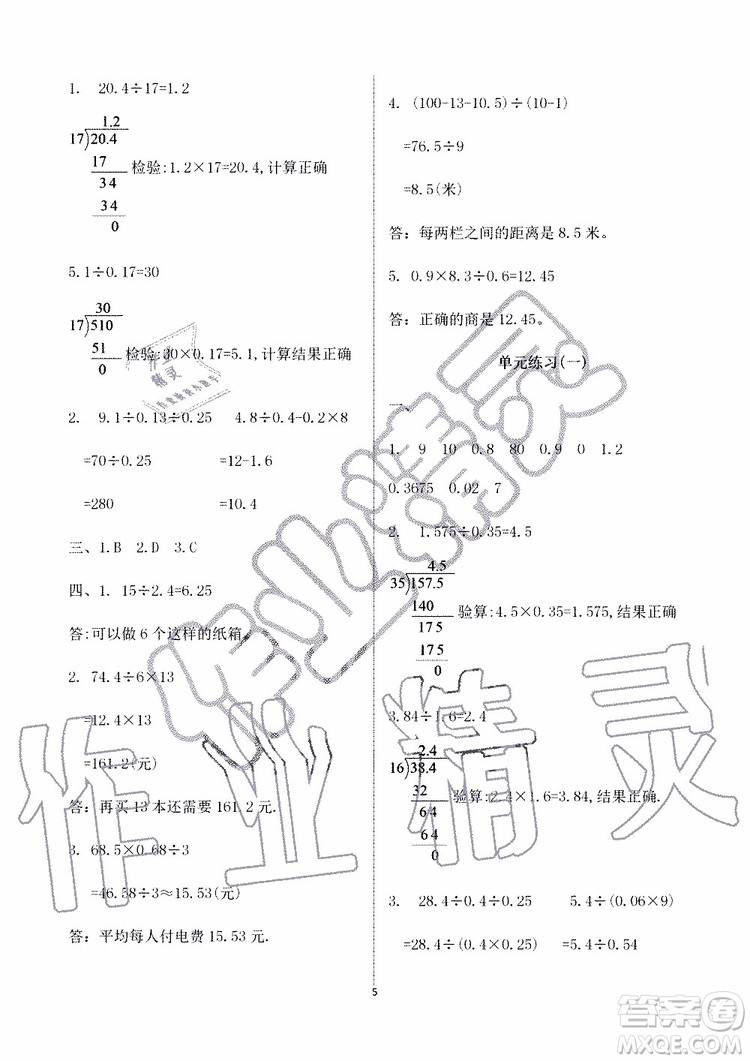 1. 20.4÷17=1.2
1.2
17)20.4
17 检验:1.2×17=20.4,计算正确
34
34
0
5.1÷0.17=30
30
17)510
51 检验:30×0.17=5.1,计算结果正确
0
2. 9.1÷0.13÷0.25 4.8÷0.4-0.2×8
=70÷0.25 =12-1.6
=280 =10.4
三、1.B 2.D 3.C
四、1. 15÷2.4=6.25
答:可以做 6 个这样的纸箱.
2. 74.4÷6×13
=12.4×13
=161.2(元)
答: 再买 13 本还需要 161.2 元.
3. 68.5×0.68÷3
=46.58÷3≈15.53(元)
答: 平均每人付电费 15.53 元.
4. (100-13-10.5)÷(10-1)
=76.5÷9
=8.5(米)
答: 每两栏之间的距离是 8.5 米。
5. 0.9×8.3÷0.6=12.45
答: 正确的商是 12.45。
单元练习(一)
一、
1. 9 10 0.8 80 0.9 0 1.2
0.3675 0.02 7
2. 1.575÷0.35=4.5
4.5
35)157.5
140 验算:4.5×0.35=1.575,结果正确
175
175
0
3.84÷1.6=2.4
2.4
16)38.4
32 验算:2.4×1.6=3.84,结果正确.
64
64
0
3. 28.4÷0.4÷0.25 5.4÷(0.06×9)
=28.4÷(0.4×0.25) =5.4÷0.54
5
作业精灵
作业精灵
作业
精灵
答案圈
MXQE.COM